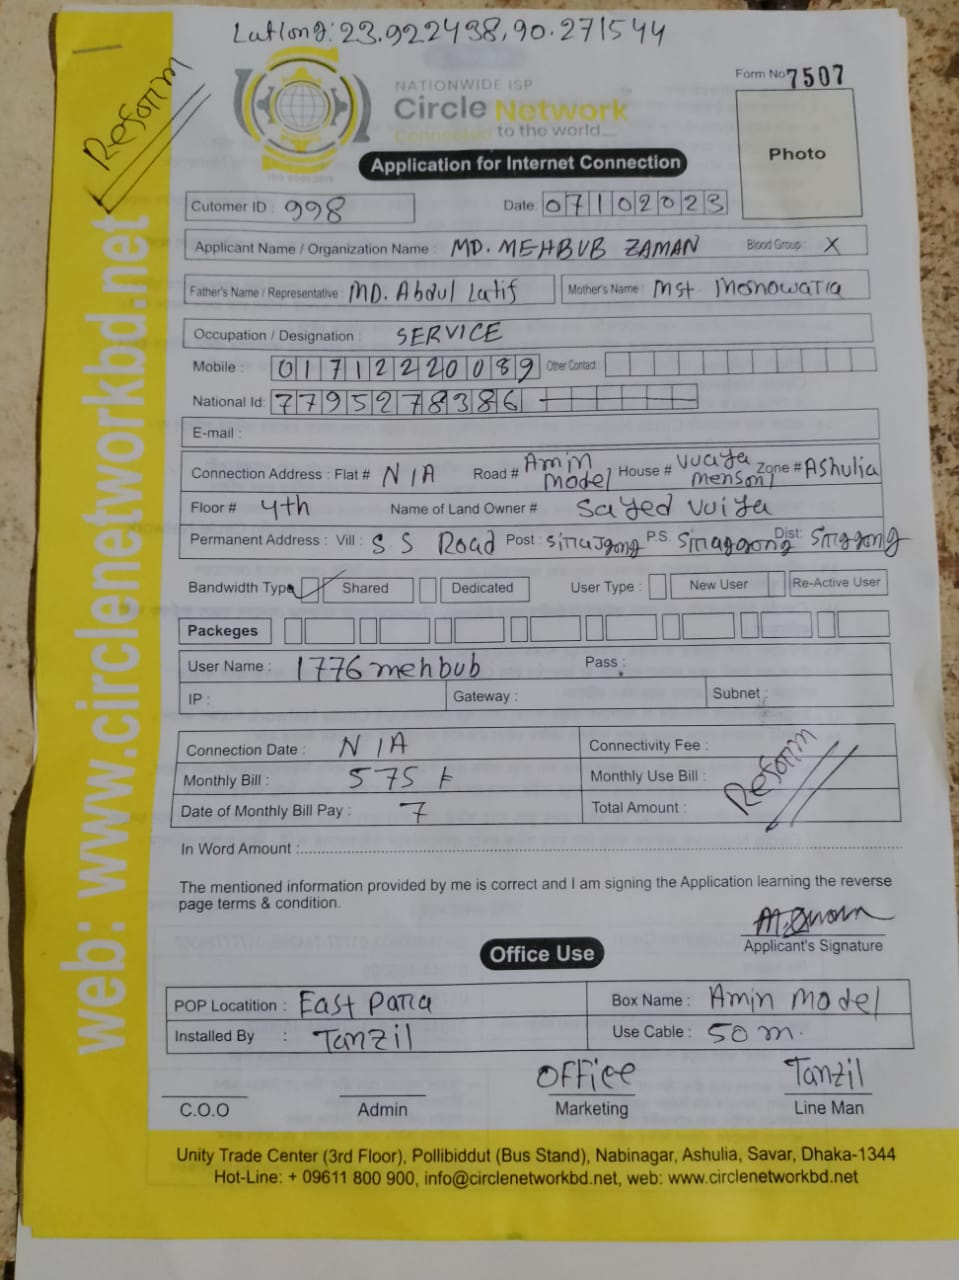 Latlong: 23.922438, 90.271544
Reform
NATIONWIDE ISP
Circle Network
Connected to the world....
ISO 9001:2015
Form No 7507
Photo
Application for Internet Connection
Cutomer ID : 998 Date: 07102023
Applicant Name / Organization Name : MD. MEHBUB ZAMAN Blood Group : X
Father's Name / Representative : MD. Abdul Latif Mother's Name : Mst Mesnowara
Occupation / Designation : SERVICE
Mobile : 01712220089 Other Contact :
National Id: 7795278386
E-mail :
Connection Address : Flat # N/A Road # Amin Model House # Vuaya Menson Zone # Ashulia
Floor # 4th Name of Land Owner # Sayed Vuiya
Permanent Address : Vill : S.S Road Post : Sirajgong P.S. Siraggong Dist: Siraggong
Bandwidth Type Shared Dedicated User Type : New User Re-Active User
Packeges
User Name : 1776mehbub Pass :
IP : Gateway : Subnet :
Connection Date : N/A Connectivity Fee :
Monthly Bill : 575 Monthly Use Bill :
Date of Monthly Bill Pay : 7 Total Amount :
Reform
In Word Amount :
The mentioned information provided by me is correct and I am signing the Application learning the reverse
page terms & condition.
Applicant's Signature
Office Use
POP Locatition : East Para Box Name : Amin Model
Installed By : Tanzil Use Cable : 50 m.
Office Tanzil
C.O.O Admin Marketing Line Man
Unity Trade Center (3rd Floor), Pollibiddut (Bus Stand), Nabinagar, Ashulia, Savar, Dhaka-1344
Hot-Line: + 09611 800 900, info@circlenetworkbd.net, web: www.circlenetworkbd.net
web: www.circlenetworkbd.net